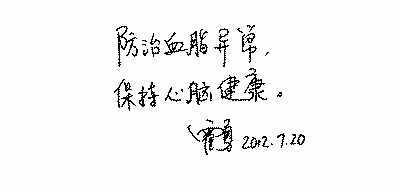 防治血脂异常，
保持心脑健康。
2012.7.20